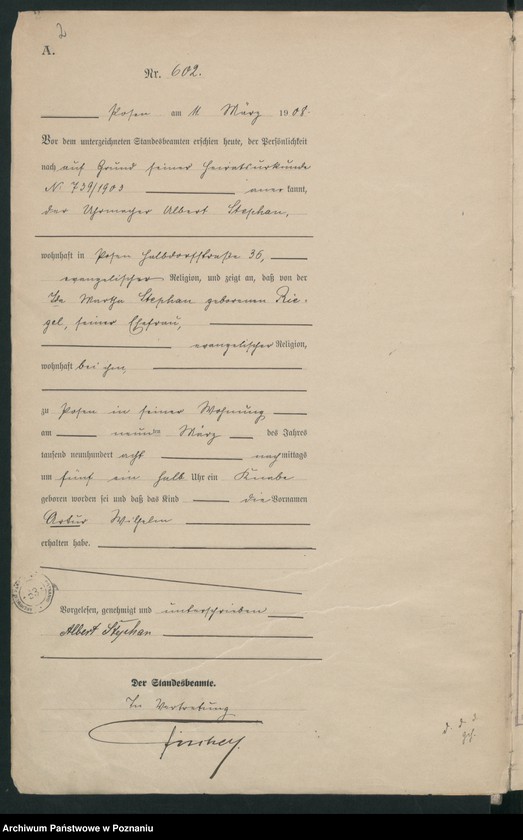 2
A.
Nr. 602.
Posen am 11 März 1908.
Vor dem unterzeichneten Standesbeamten erschien heute, der Persönlichkeit
nach auf Grund seiner Heiratsurkunde
N 739/1903 anerkannt,
der Uhrmacher Albert Stephan,
wohnhaft in Posen Halbdorfstraße 36,
evangelischer Religion, und zeigt an, daß von der
Ida Martha Stephan geborenen Rie-
gel, seiner Ehefrau,
evangelischer Religion,
wohnhaft bei ihm,
zu Posen in seiner Wohnung
am neunten März des Jahres
tausend neunhundert acht nachmittags
um fünf ein halb Uhr ein Knabe
geboren worden sei und daß das Kind die Vornamen
Artur Wilhelm
erhalten habe.
Vorgelesen, genehmigt und unterschrieben
Albert Stephan
Der Standesbeamte.
In Vertretung
Archiwum Państwowe w Poznaniu